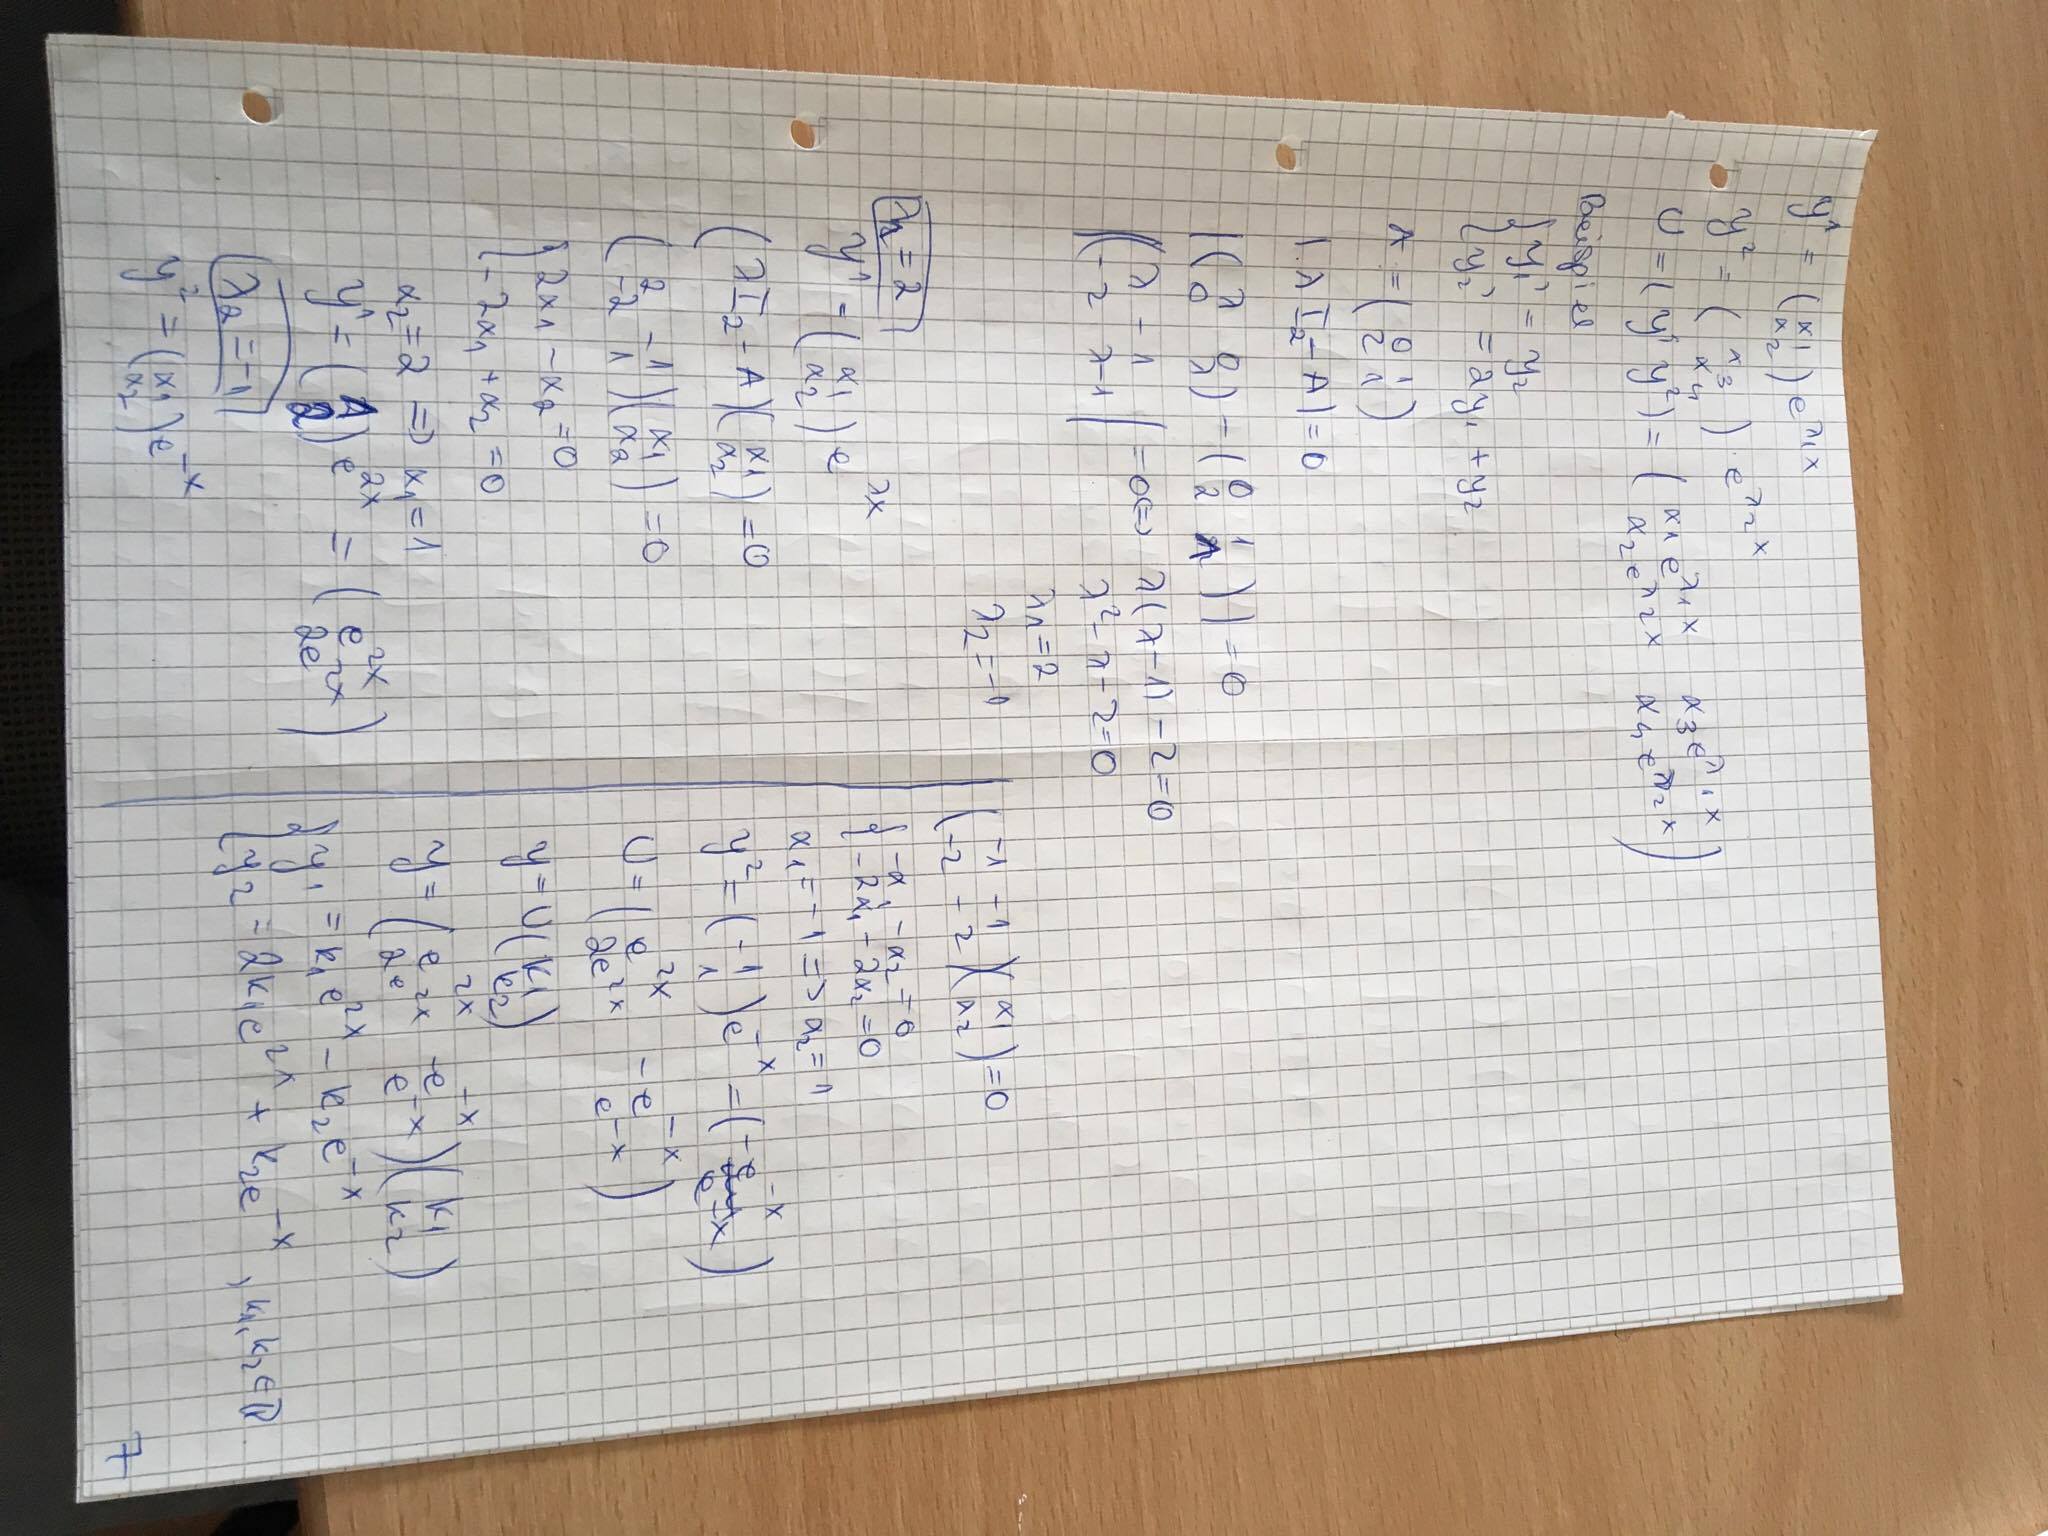 y¹ = (α1 α2) e^λ1x
y² = (α3 α4) · e^λ2x
U = (y¹ y²) = (α1e^λ1x α3e^λ1x
α2e^λ2x α4e^λ2x)
Beispiel
{ y1' = y2
{ y2' = 2y1 + y2
A = (0 1
2 1)
|·λI2 - A| = 0
|(λ 0
0 λ) - (0 1
2 1)| = 0
|(λ -1
-2 λ-1| = 0 <=> λ(λ-1) - 2 = 0
λ² - λ - 2 = 0
λ1 = 2
λ2 = -1
λ1 = 2
y¹ = (α1 α2) e^λx
(λI2 - A)(α1 α2) = 0
(2 -1
-2 1)(α1 α2) = 0
{ 2α1 - α2 = 0
{ -2α1 + α2 = 0
α2 = 2 => α1 = 1
y¹ = (1 2) e^2x = (e^2x
2e^2x)
λ2 = -1
y² = (α1 α2) e^-x
(-1 -1
-2 -2)(α1 α2) = 0
{ -α1 - α2 = 0
{ -2α1 - 2α2 = 0
α1 = -1 => α2 = 1
y² = (-1 1) e^-x = (-e^-x
e^-x)
U = (e^2x -e^-x
2e^2x e^-x)
y = U(k1 k2)
y = (e^2x -e^-x
2e^2x e^-x)(k1 k2)
{ y1 = k1e^2x - k2e^-x
{ y2 = 2k1e^2x + k2e^-x , k1, k2 ∈ ℝ
7